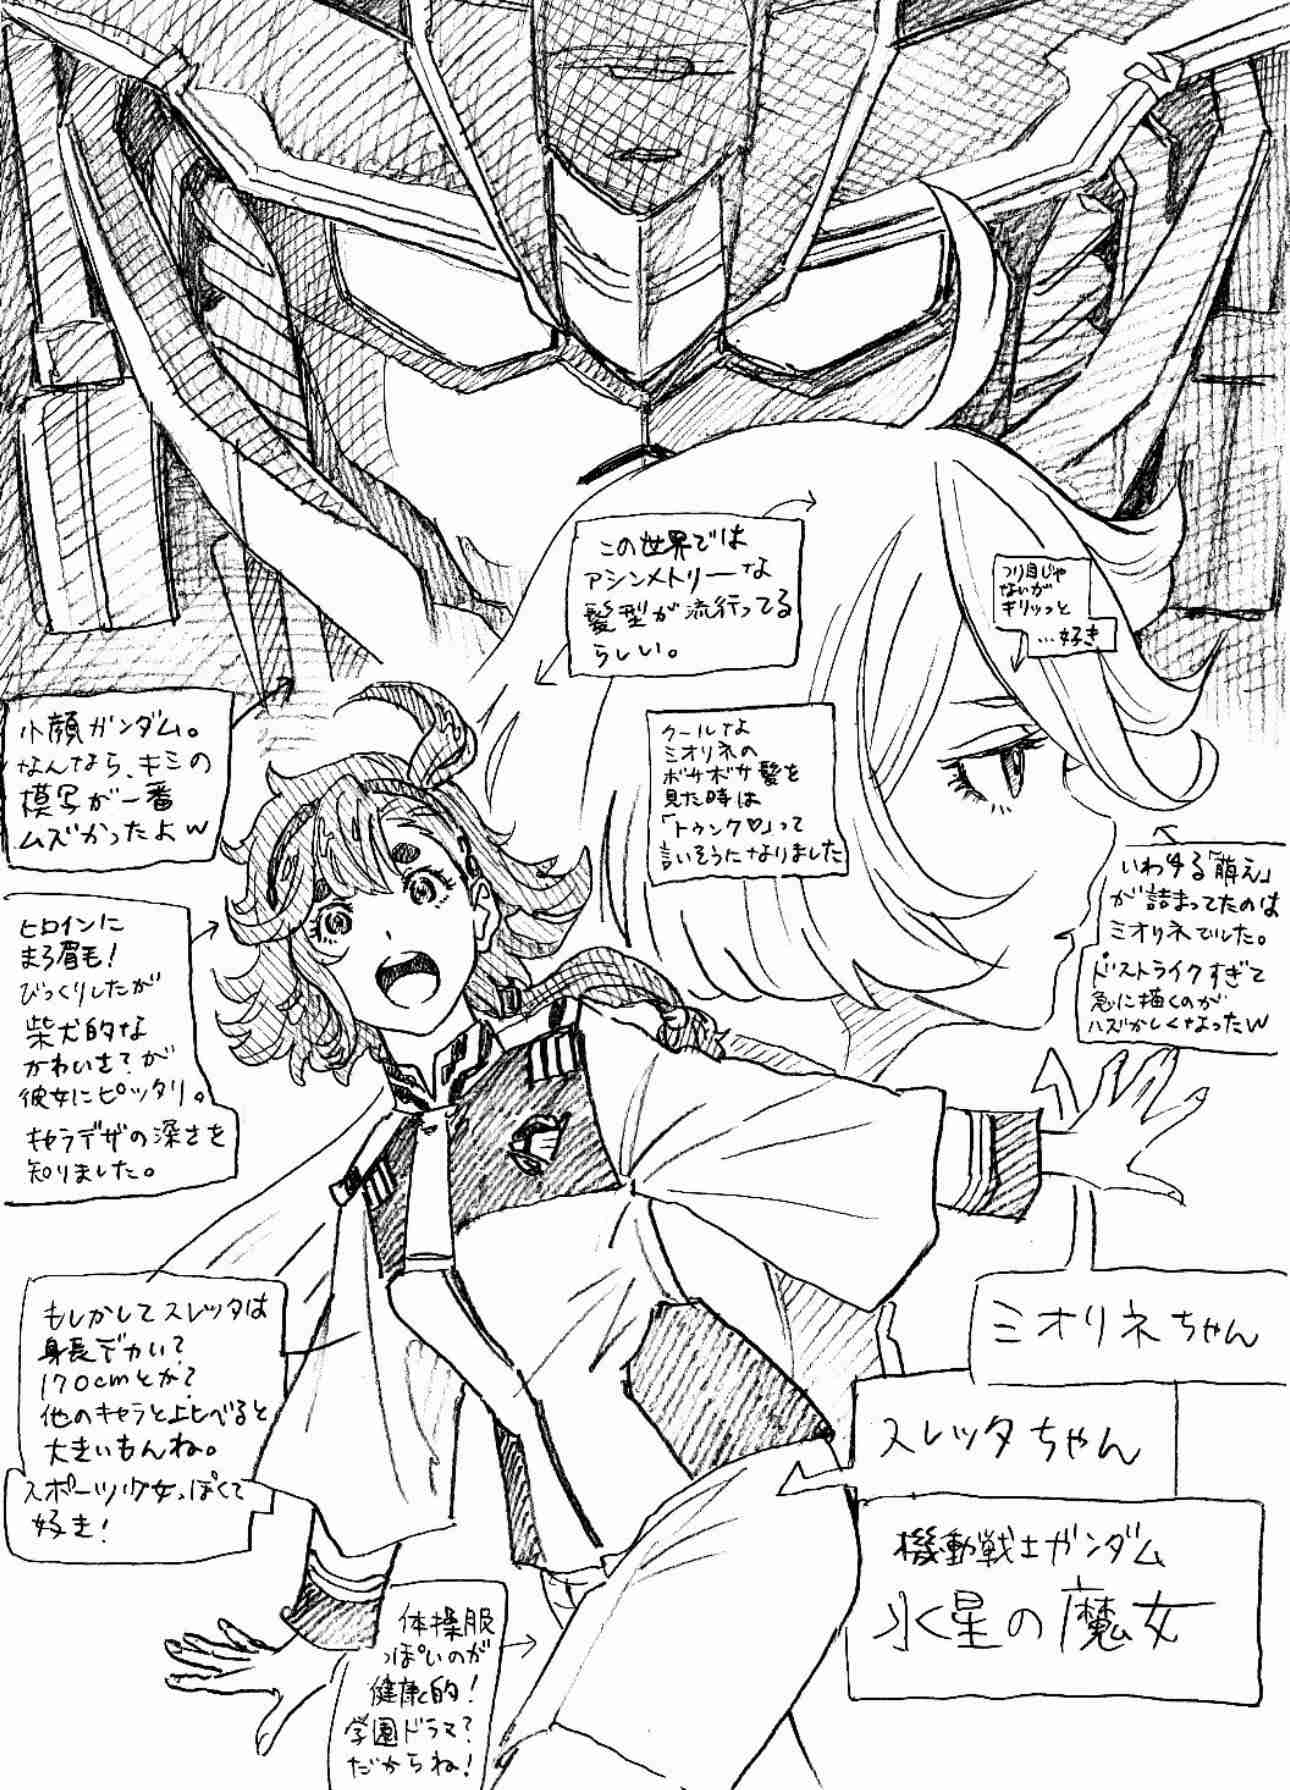 この世界では
アシンメトリーな
髪型が流行ってる
らしい。
つり目じゃ
ないが
キリッっと
…好き
小顔ガンダム。
なんなら、キミの
模写が一番
ムズかったよw
クールな
ミオリネの
ボサボサ髪を
見た時は
「トゥンク♡」って
言いそうになりました
いわゆる「萌え」
が詰まってたのは
ミオリネでした。
ドストライクすぎて
急に描くのが
ハズかしくなったw
ヒロインに
まろ眉毛!
びっくりしたが
柴犬的な
かわいさ?が
彼女にピッタリ。
キャラデザの深さを
知りました。
もしかしてスレッタは
身長デカい?
170cmとか?
他のキャラと比べると
大きいもんね。
スポーツ少女っぽくて
好き!
ミオリネちゃん
スレッタちゃん
機動戦士ガンダム
水星の魔女
体操服
っぽいのが
健康的!
学園ドラマ?
だからね!